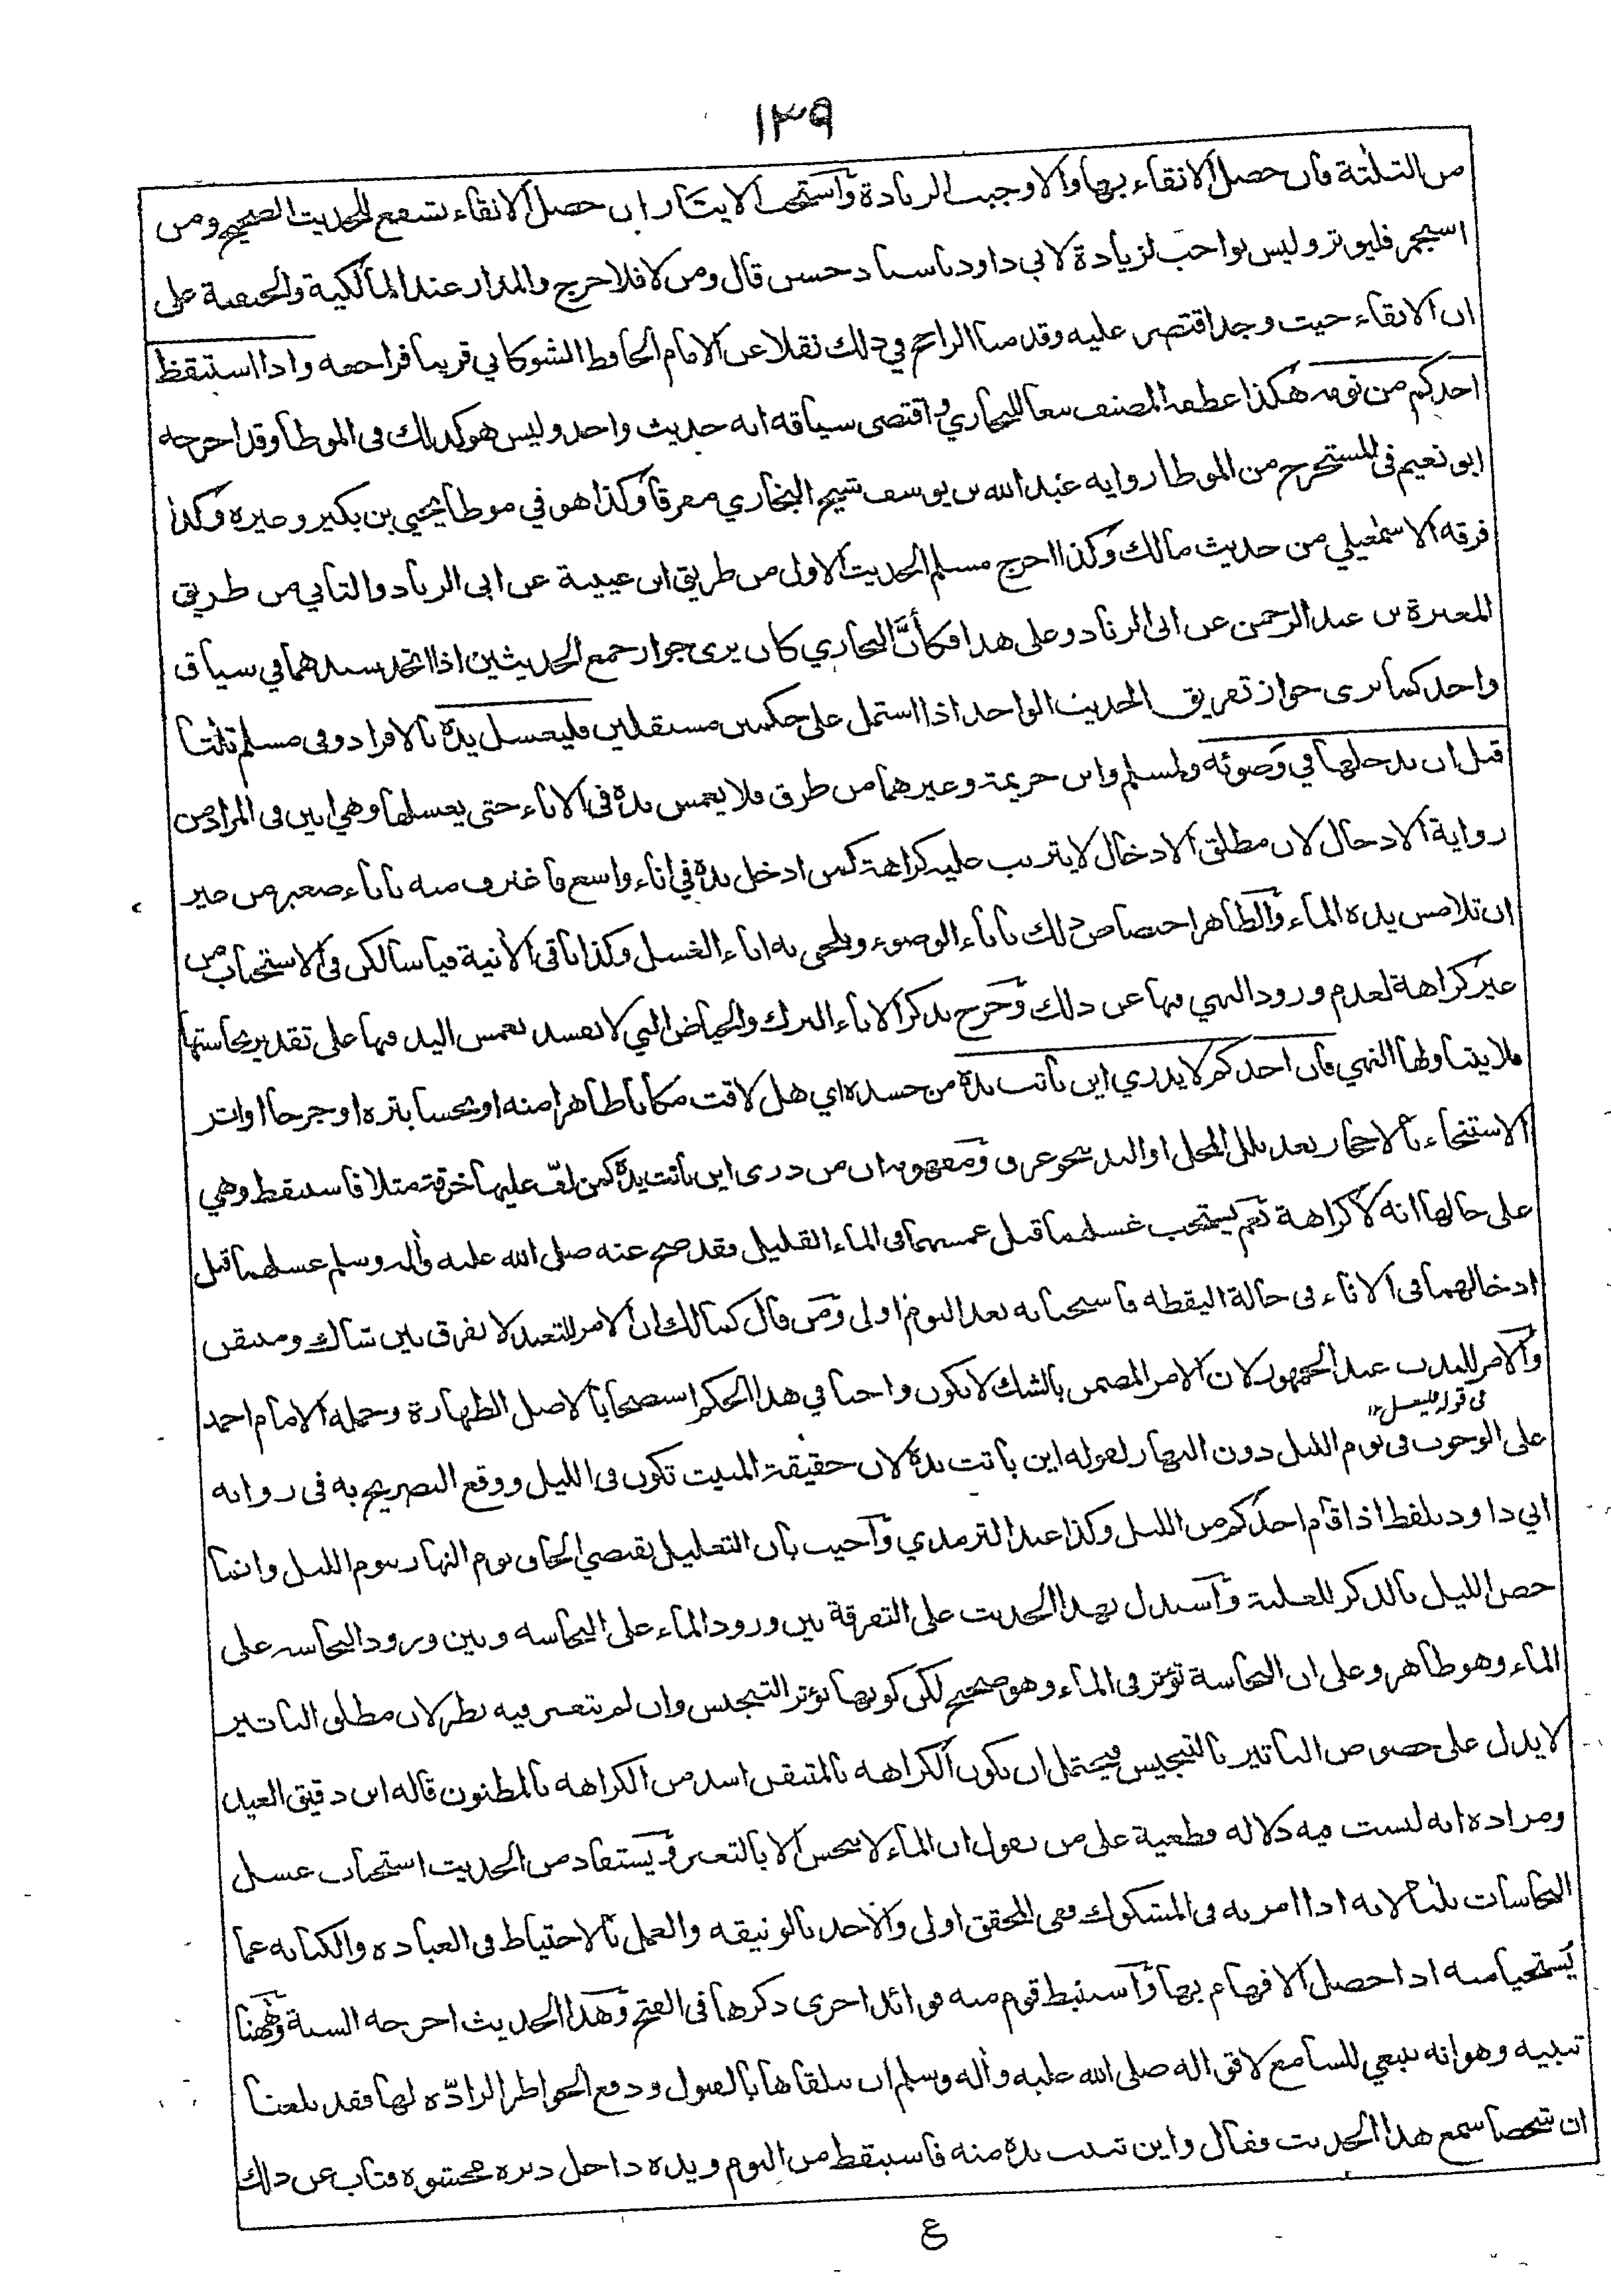 ١٣٩
من الثلثة فان حصل الانقاء بها والا وجبت الزيادة واستحب الايتار ان حصل الانقاء بشفع للحديث الصحيح ومن
استجمر فليوتر وليس بواجب لزيادة لابي داود باسناد حسن قال ومن لا فلا حرج والمدار عند المالكية والحنفية على
ان الانقاء حيث وجد اقتصر عليه وقدمنا الراجح في ذلك نقلا عن الامام الحافظ الشوكاني قريبا فراجعه واذا استيقظ
احدكم من نومه هكذا عطفه المصنف تبعا للبخاري واقتضى سياقه انه حديث واحد وليس هو كذلك في الموطا وقد اخرجه
ابو نعيم في المستخرج من الموطا رواية عبد الله بن يوسف شيخ البخاري مفرقا وكذا هو في موطا يحيى بن بكير وغيره وكذا
فرقه الاسمعيلي من حديث مالك وكذا اخرج مسلم الحديث الاول من طريق ابن عيينة عن ابي الزناد والثاني من طريق
المغيرة بن عبد الرحمن عن ابي الزناد وعلى هذا فكأنَّ البخاري كان يرى جواز جمع الحديثين اذا اتحد سندهما في سياق
واحد كما يرى جواز تفريق الحديث الواحد اذا اشتمل على حكمين مستقلين فليغسل يده بالافراد وفي مسلم ثلثا
قبل ان يدخلها في وضوئه ولمسلم وابن خزيمة وغيرهما من طرق فلا يغمس يده في الاناء حتى يغسلها وهي ابين في المراد من
رواية الادخال لان مطلق الادخال لا يترتب عليه كراهة كمن ادخل يده في اناء واسع فاغترف منه باناء صغير من غير
ان تلامس يده الماء والظاهر اختصاص ذلك باناء الوضوء ويلحق به اناء الغسل وكذا باقي الآنية قياسا لكن في الاستحباب من
غير كراهة لعدم ورود النهي فيها عن ذلك وخرج بذكر الاناء البرك والحياض التي لا تفسد بغمس اليد فيها على تقدير نجاستها
فلا يتناولها النهي فان احدكم لا يدري اين باتت يده من جسده اي هل لاقت مكانا طاهرا منه او نجسا بثره او جرحا او اثر
الاستنجاء بالاحجار بعد بلل المحل او اليد بنحو عرق ومفهومه ان من درى اين باتت يده كمن لفّ عليها خرقة مثلا فاستيقظ وهي
على حالها انه لا كراهة نعم يستحب غسلهما قبل غمسهما في الماء القليل فقد صح عنه صلى الله عليه وآله وسلم غسلهما قبل
ادخالهما في الاناء في حالة اليقظة فاستحبابه بعد النوم اولى ومن قال كمالك ان الامر للتعبد لا يفرق بين شاك ومتيقن
والامر للندب عند الجمهور لان الامر المضمن بالشك لا يكون واجبا في هذا الحكم استصحابا لاصل الطهارة وحمله الامام احمد
في قوله فليغسل١٢
على الوجوب في نوم الليل دون النهار لقوله اين باتت يده لان حقيقة المبيت تكون في الليل ووقع التصريح به في رواية
ابي داود بلفظ اذا قام احدكم من الليل وكذا عند الترمذي واجيب بان التعليل يقتضي الحاق نوم النهار بنوم الليل وانما
خص الليل بالذكر للغلبة واستدل بهذا الحديث على التفرقة بين ورود الماء على النجاسة وبين ورود النجاسة على
الماء وهو ظاهر وعلى ان النجاسة تؤثر في الماء وهو صحيح لكن كونها تؤثر التنجيس وان لم يتغير فيه نظر لان مطلق التاثير
لا يدل على خصوص التاثير بالتنجيس فيحتمل ان يكون الكراهة بالمتيقن اشد من الكراهة بالمظنون قاله ابن دقيق العيد
ومراده انه ليست فيه دلالة قطعية على من يقول ان الماء لا ينجس الا بالتغير ويستفاد من الحديث استحباب غسل
النجاسات ثلثا لانه اذا امر به في المشكوك ففي المحقق اولى والاخذ بالوثيقة والعمل بالاحتياط في العبادة والكناية عما
يُستحيا منه اذا حصل الافهام بها واستنبط قوم منه فوائد اخرى ذكرها في الفتح وهذا الحديث اخرجه الستة وههنا
تنبيه وهو انه ينبغي للسامع لاقواله صلى الله عليه وآله وسلم ان يتلقاها بالقبول ودفع الخواطر الرادّة لها فقد بلغنا
ان شخصا سمع هذا الحديث فقال واين تبيت يده منه فاستيقظ من النوم ويده داخل دبره محشوة فتاب عن ذلك
ع